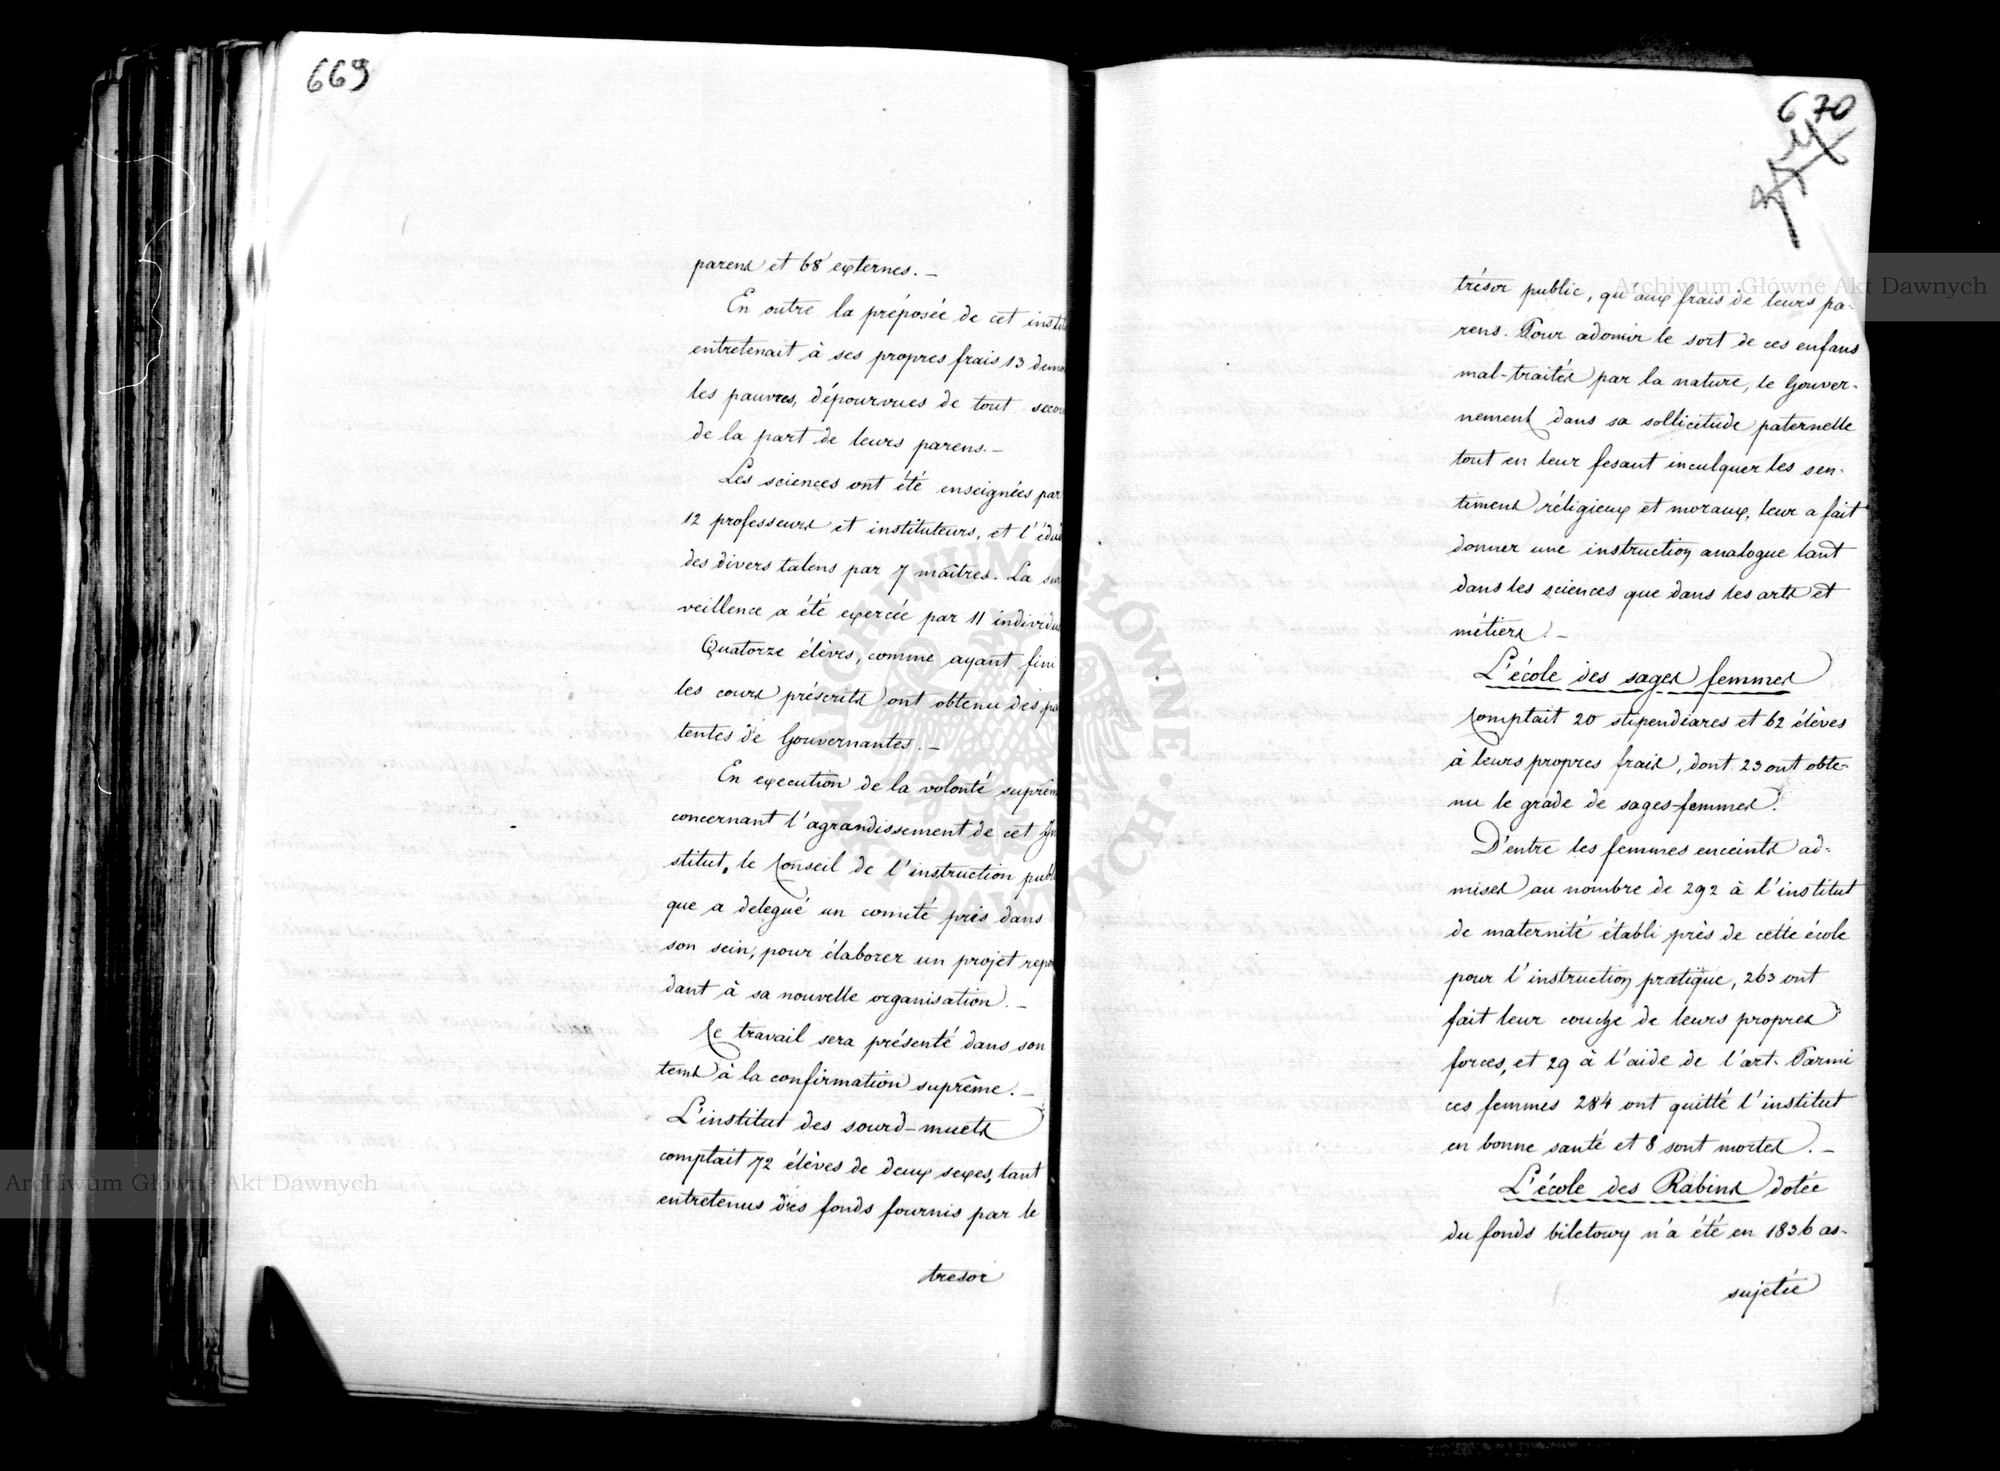 669
parens et 68 externes. –
En outre la préposée de cet instit
entretenait à ses propres frais 13 demoi
les pauvres, dépourvues de tout secou
de la part de leurs parens. –
Les sciences ont été enseignées par
12 professeurs et instituteurs, et l'édu
des divers talens par 7 maîtres. La sur
veillence a été exercée par 11 individu
Quatorze élèves, comme ayant fini
les cours préscrits ont obtenu des pa
tentes de Gouvernantes. –
En execution de la volonté suprêm
concernant l'agrandissement de cet In
stitut, le Conseil de l'instruction publi
que a delegué un comité pris dans
son sein, pour élaborer un projet repon
dant à sa nouvelle organisation. –
Ce travail sera présenté dans son
tems à la confirmation suprême. –
L'institut des sourd-muets
comptait 72 élèves de deux sexes, tant
entretenus des fonds fournis par le
tresor
670
trésor public, qu'aux frais de leurs pa-
rens. Pour adomir le sort de ces enfans
mal-traités par la nature, le Gouver-
nement dans sa sollicitude paternelle
tout en leur fesant inculquer les sen-
timens réligieux et moraux, leur a fait
donner une instruction analogue tant
dans les sciences que dans les arts et
métiers. –
L'école des sages femmes
comptait 20 stipendiares et 62 élèves
à leurs propres frais, dont 23 ont obte-
nu le grade de sages-femmes.
D'entre les femmes enceints ad-
mises au nombre de 292 à l'institut
de maternité établi près de cette école
pour l'instruction pratique, 263 ont
fait leur couche de leurs propres
forces, et 29 à l'aide de l'art. Parmi
ces femmes 284 ont quitté l'institut
en bonne santé et 8 sont mortes. –
L'école des Rabins dotée
du fonds biletowy n'a été en 1836 as-
sujetie
Archiwum Główne Akt Dawnych
Archiwum Główne Akt Dawnych
ARCHIWUM GŁÓWNE AKT DAWNYCH